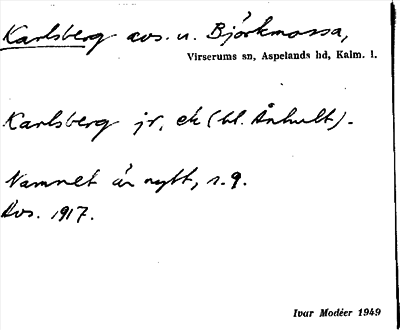 Karlsberg avs. u. Björkmossa,
Virserums sn, Aspelands hd, Kalm. l.
Karlsberg jr, ek (bl. Ånhult).
Namnet är nytt, s. g.
Avs. 1917.
Ivar Modéer 1949